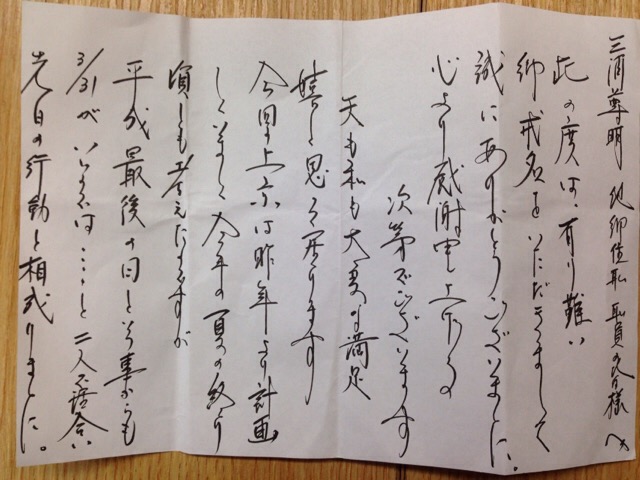 三浦尊明 職員の皆様へ
此の度は、有り難い
御戒名をいただきまして
誠にありがとうございました。
心より感謝申し上げる
次第でございます
夫も私も大変な満足
嬉しく思って居ります
今回の上京は昨年より計画
していまして 今年の夏の終り
頃とも考えたのですが
平成最後の日という事からも
3/31がいいのでは……と二人で話合い
先日の行動と相成りました。